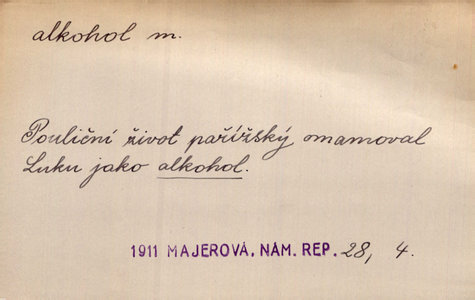 alkohol m.
Pouliční život pařížský omamoval
Luku jako alkohol.
1911 MAJEROVÁ, NÁM. REP. 28, 4.